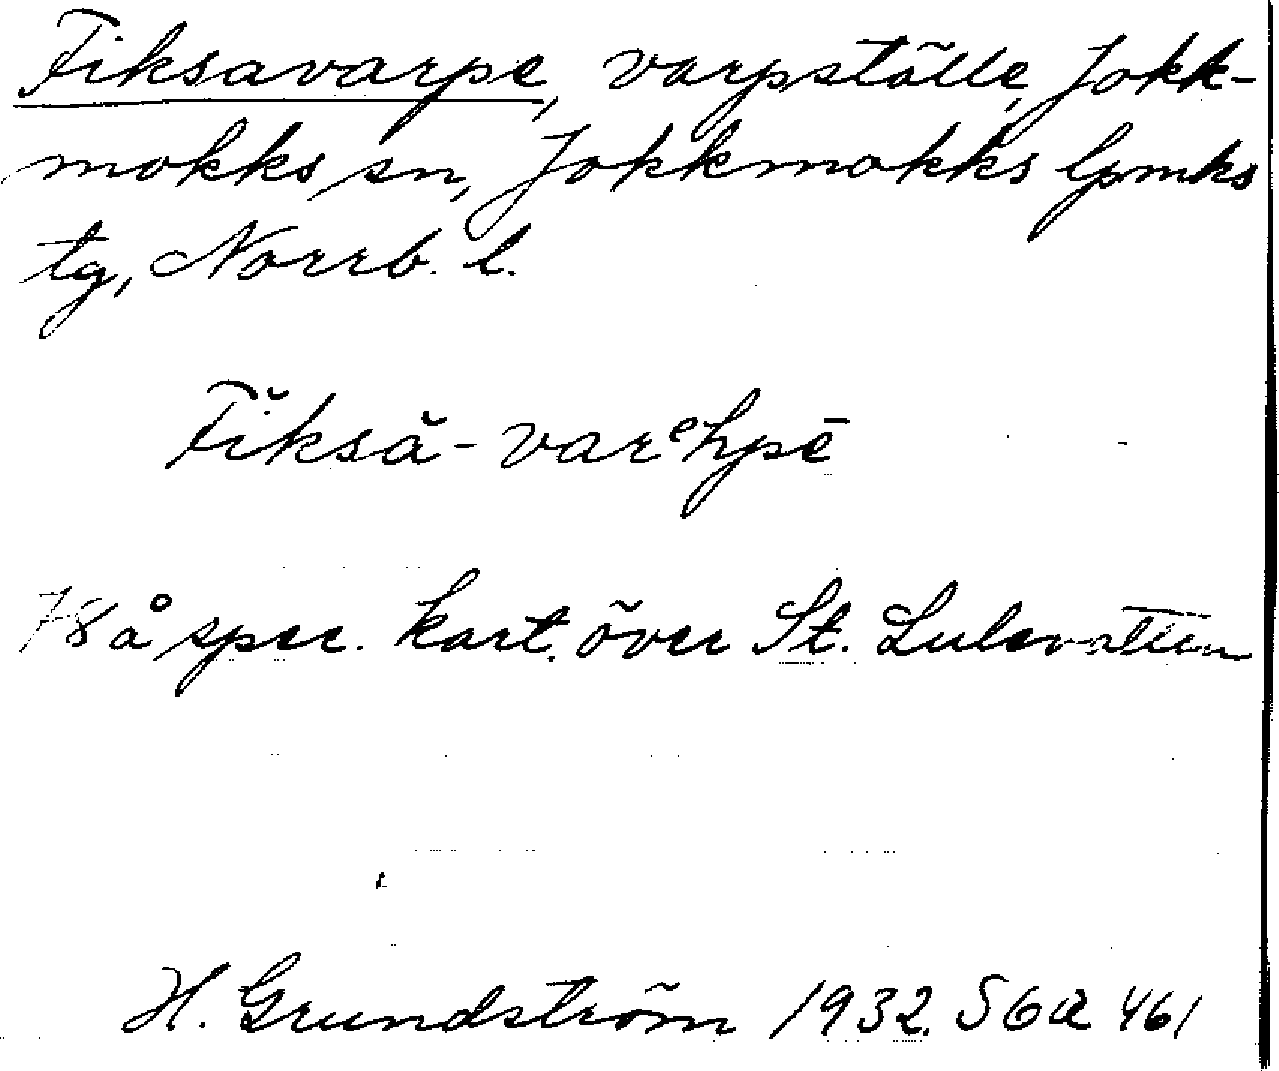 Fiksavarpe, varpställe, Jokk-
mokks sn, Jokkmokks lpmks
tg, Norrb. l.
Fĭksă-varᵉhpē
78 å spec. kart. över St. Lulevatten
H. Grundström 1932. S6a 461